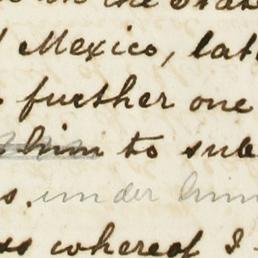 on the State
Mexico, lat
further one
him to sub
s. under him
ss whereof I